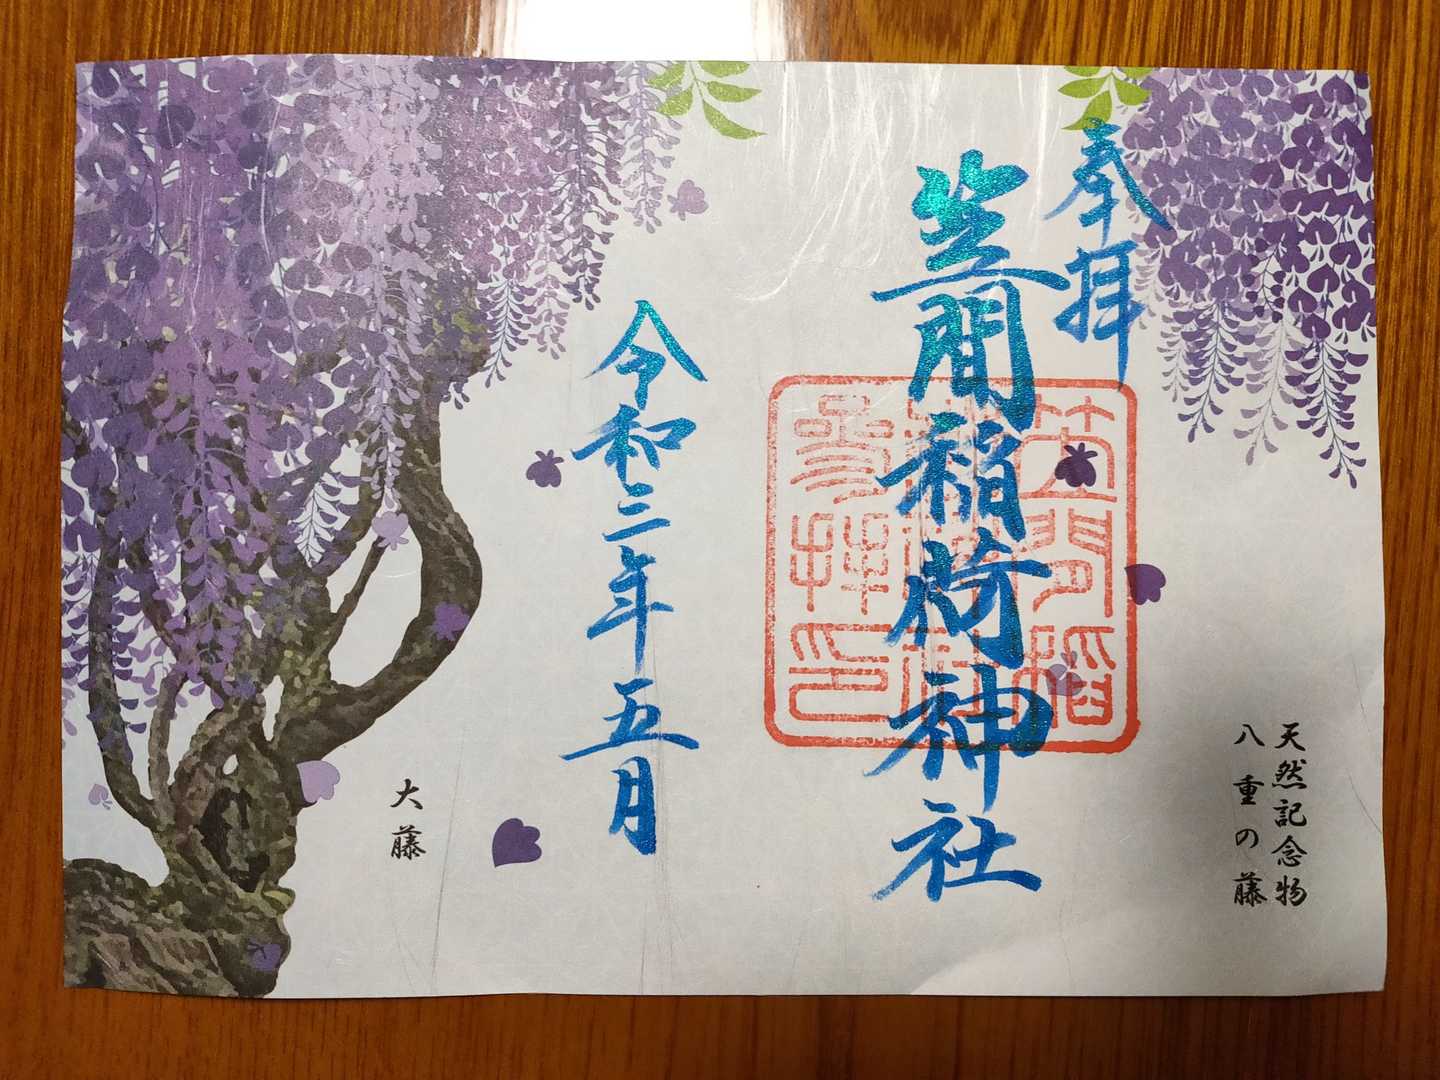 奉拝
笠間稲荷神社
令和三年五月
天然記念物
八重の藤
大藤
笠間稲
参拝印